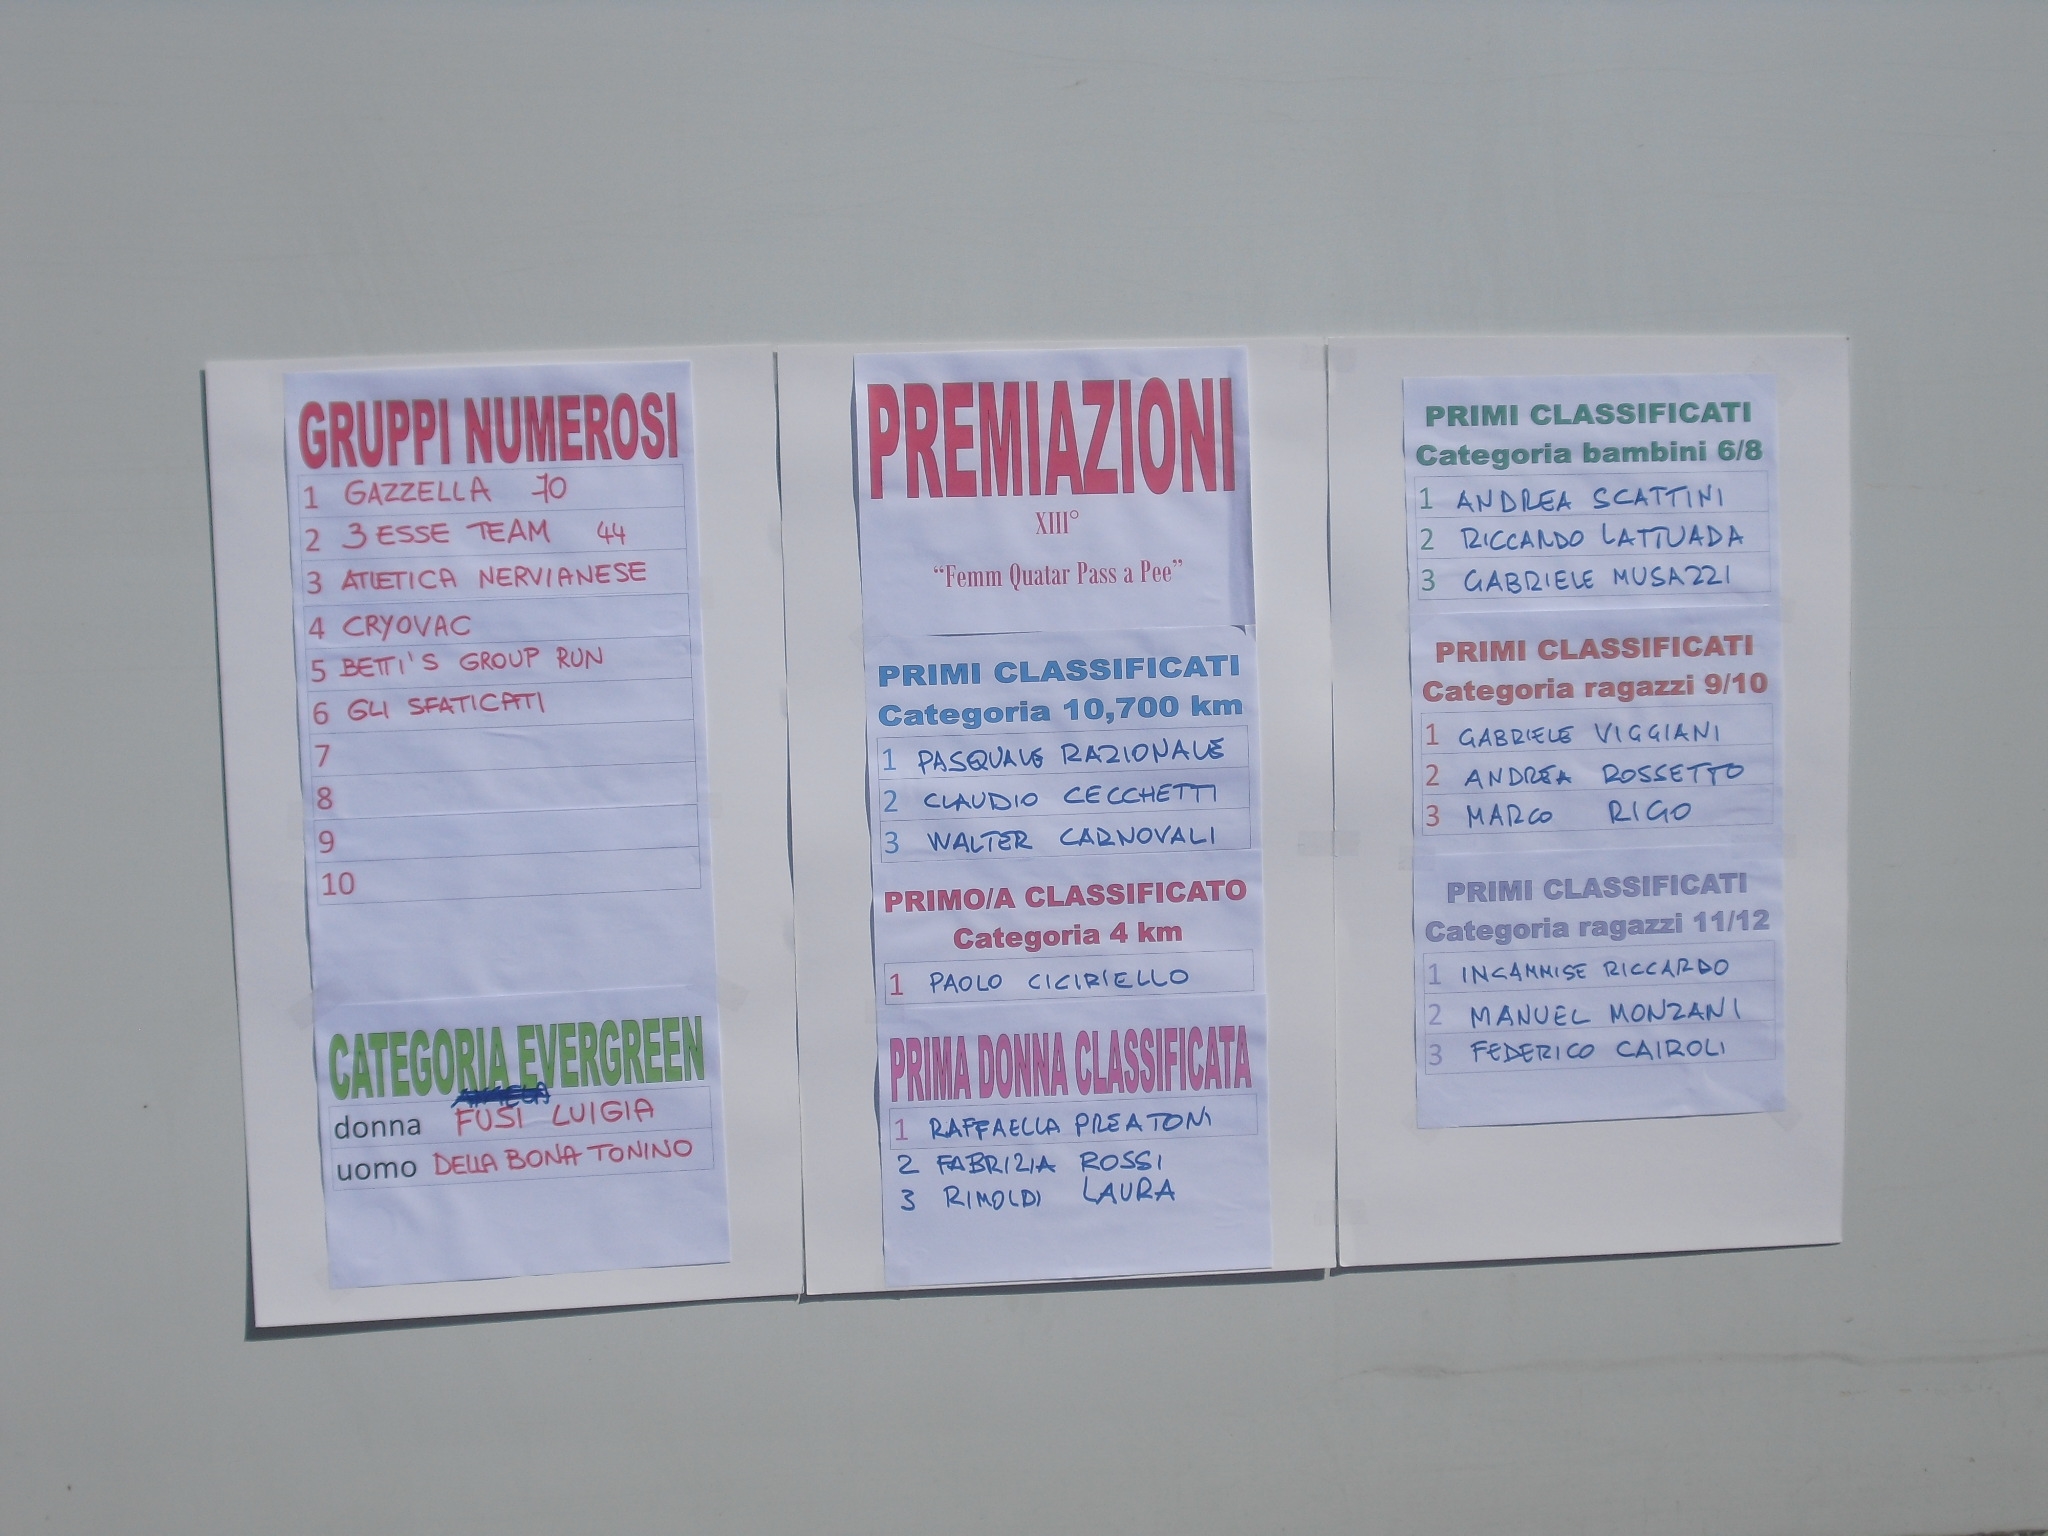 GRUPPI NUMEROSI
1 GAZZELLA 70
2 3 ESSE TEAM 44
3 ATLETICA NERVIANESE
4 CRYOVAC
5 BETTI'S GROUP RUN
6 GLI SFATICATI
7
8
9
10
CATEGORIA EVERGREEN
donna FUSI LUIGIA
uomo DELLA BONA TONINO
PREMIAZIONI
XIII°
“Femm Quatar Pass a Pee”
PRIMI CLASSIFICATI
Categoria 10,700 km
1 PASQUALE RAZIONALE
2 CLAUDIO CECCHETTI
3 WALTER CARNOVALI
PRIMO/A CLASSIFICATO
Categoria 4 km
1 PAOLO CICIRIELLO
PRIMA DONNA CLASSIFICATA
1 RAFFAELLA PREATONI
2 FABRIZIA ROSSI
3 RIMOLDI LAURA
PRIMI CLASSIFICATI
Categoria bambini 6/8
1 ANDREA SCATTINI
2 RICCARDO LATTUADA
3 GABRIELE MUSAZZI
PRIMI CLASSIFICATI
Categoria ragazzi 9/10
1 GABRIELE VIGGIANI
2 ANDREA ROSSETTO
3 MARCO RIGO
PRIMI CLASSIFICATI
Categoria ragazzi 11/12
1 INGAMMISE RICCARDO
2 MANUEL MONZANI
3 FEDERICO CAIROLI